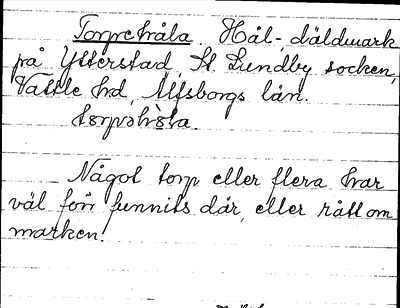 Torpetråla Hål-, däldmark
på Ytterstad, St. Lundby socken,
Vättle hd, Älfsborgs län.
Något torp eller flera har
väl förr funnits där, eller rätt om
marken.